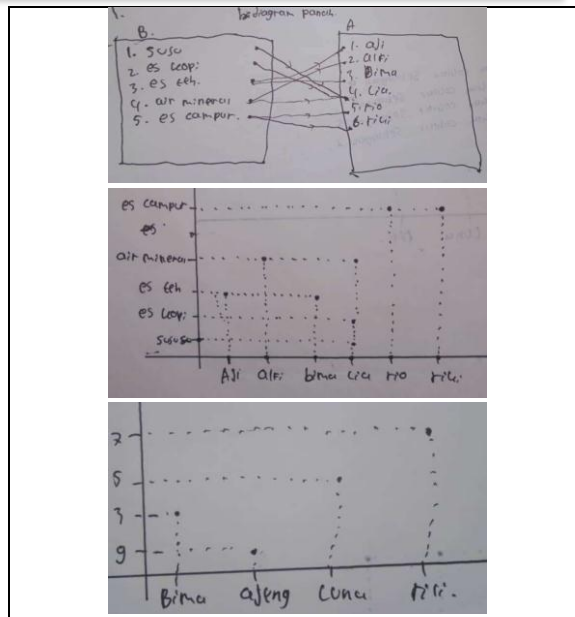 1.
bediagram panah.
B.
1. Susu
2. es kopi
3. es teh.
4. air mineral
5. es campur.
A
1. aji
2. alfi
3. Bima
4. cia.
5. rio
6. riki
es campur
es
air mineral
es teh
es kopi
susu
Aji alfi bima cia rio riki
7
5
3
9
Bima ajeng Luna riki.